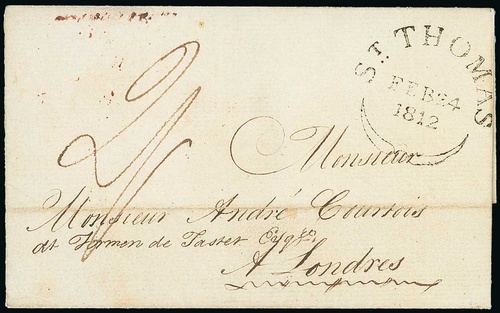 ST. THOMAS
FEB 24
1812
2/
Monsieur
Monsieur André Courtois
at Firmen de Taster Esqre.
A Londres